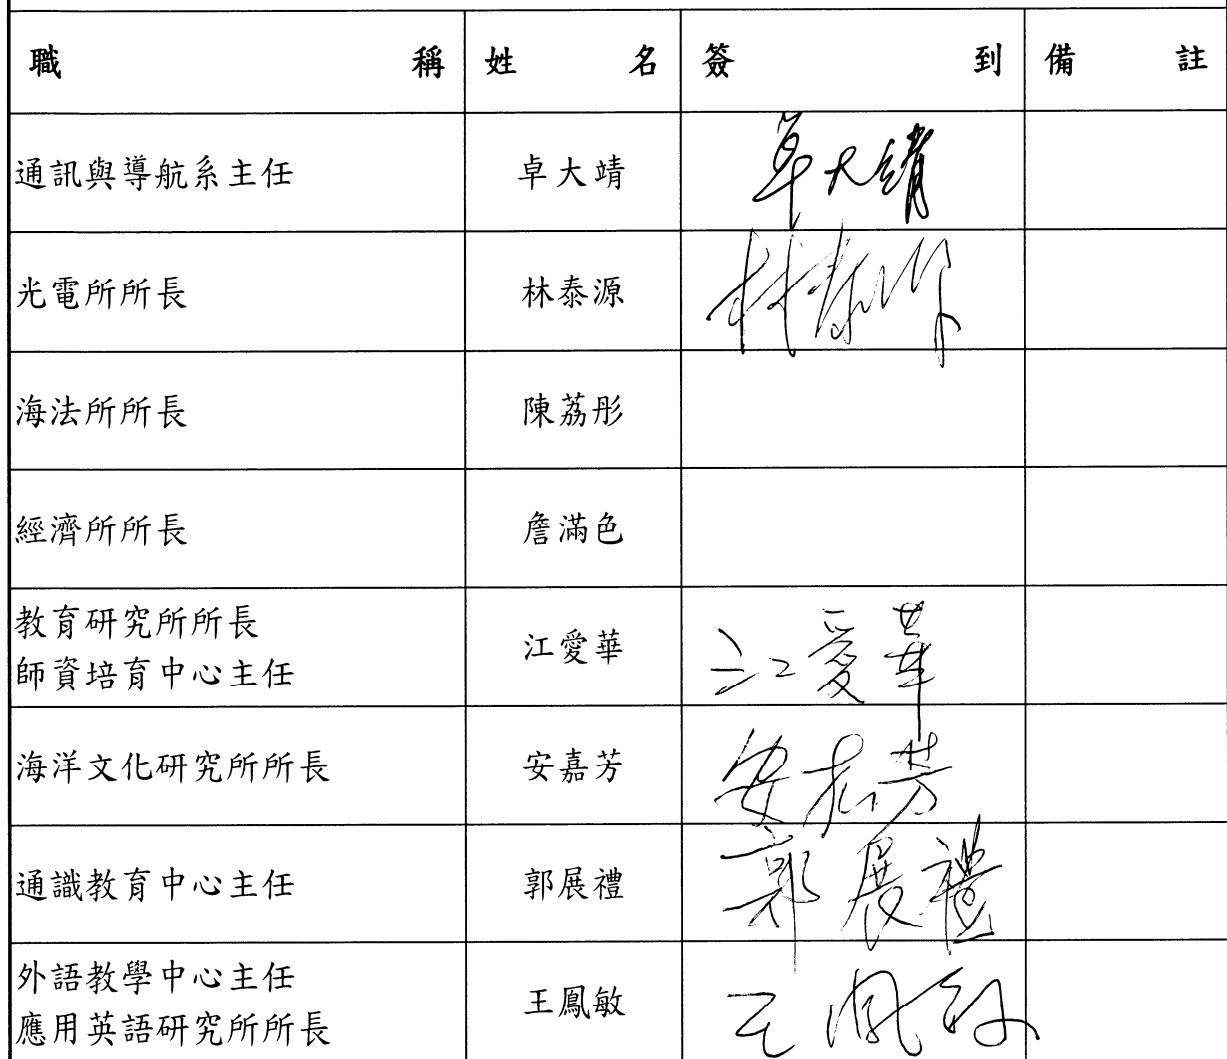 職稱 姓名 簽到 備註
通訊與導航系主任 卓大靖 卓大靖
光電所所長 林泰源 林泰源
海法所所長 陳荔彤
經濟所所長 詹滿色
教育研究所所長
師資培育中心主任 江愛華 江愛華
海洋文化研究所所長 安嘉芳 安嘉芳
通識教育中心主任 郭展禮 郭展禮
外語教學中心主任
應用英語研究所所長 王鳳敏 王鳳敏